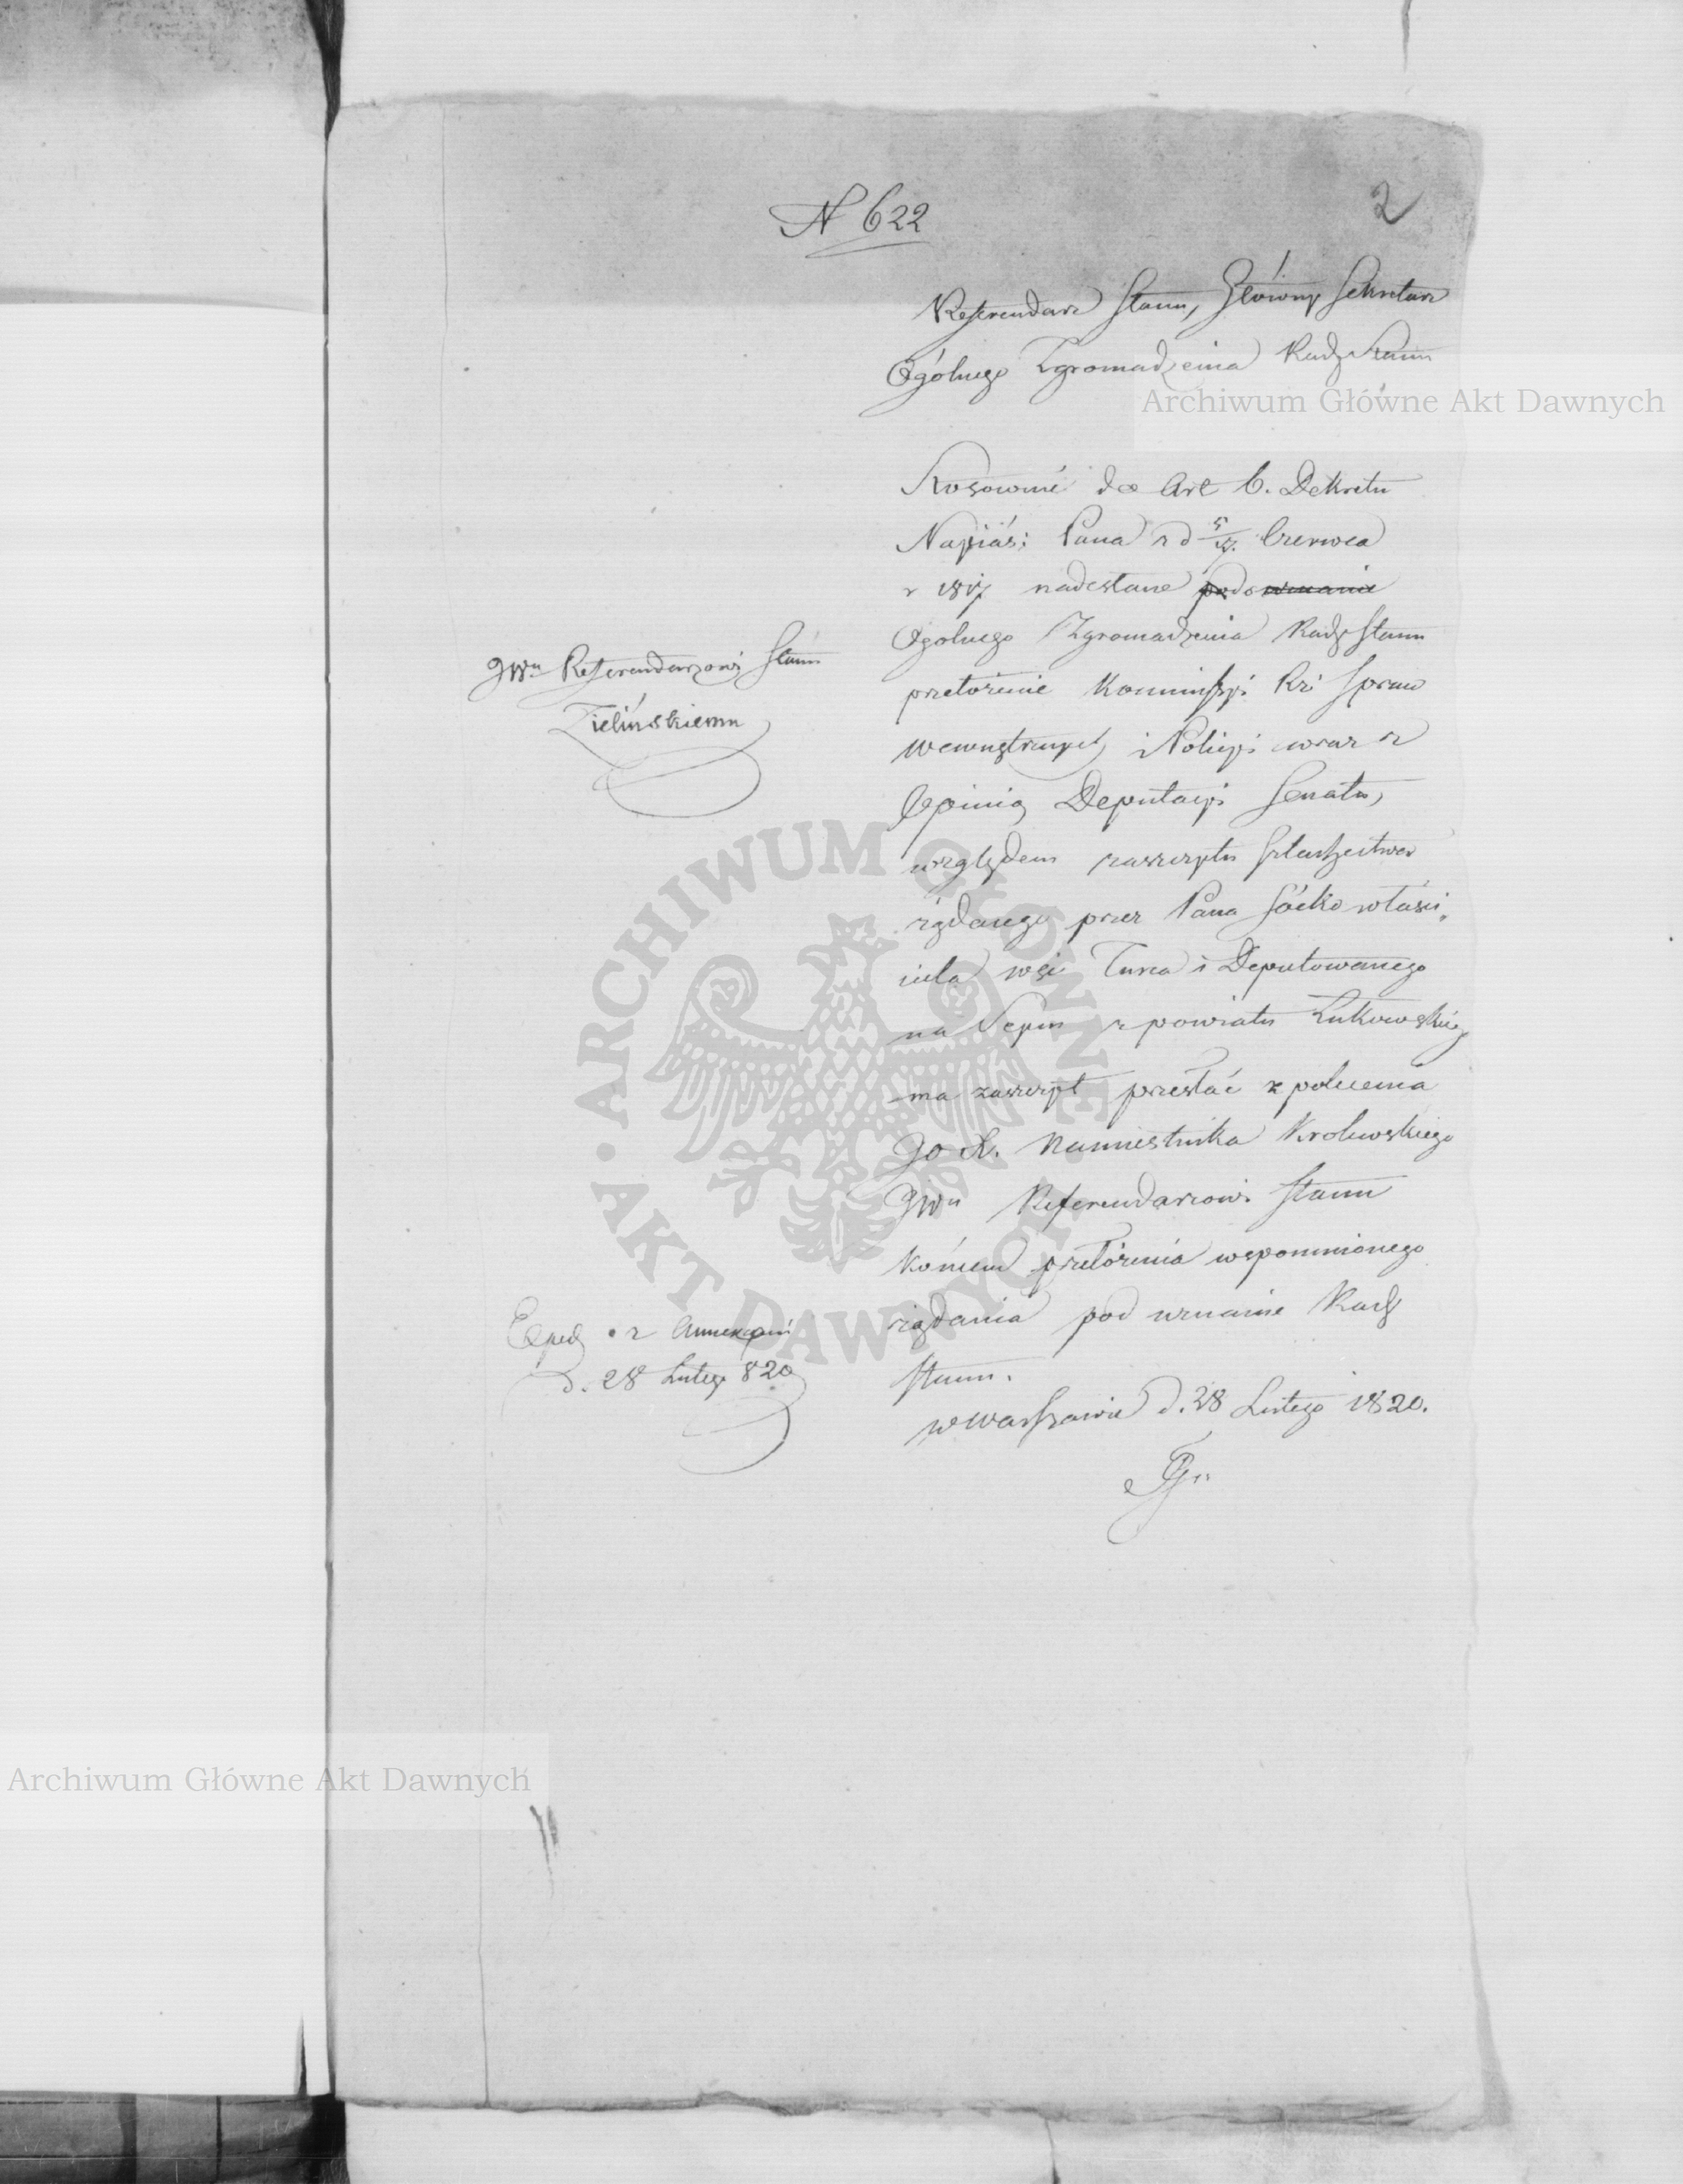 N 622
2
Referendarz Stanu, Główny Sekretarz
Ogólnego Zgromadzenia Rady Stanu
Archiwum Główne Akt Dawnych
Stosownie do Art 6. Dekretu
Najjaś: Pana z d 5/17. Czerwca
r 1817 nadesłane
Ogolnego Zgromadzenia Rady Stanu
JWu Referendarzowi Stanu
Zielińskiemu
przełożenie Kommissyi Rz: Spraw
wewnętrznych i Policyi wraz z
Opinią Deputacyi Senatu,
względem zaszczytu szlachectwa
żądanego przez Pana właści„
ciela wsi i Deputowanego
na Seym z powiatu Łukowskieg
ma zaszczyt przesłać z polecenia
JO X. Namiestnika Krolewskiego
JWu Referendarzowi Stanu
Końcem przełożenia wspomnionego
żądania pod uznanie Rady
Stanu.
w Warszawie d. 28 Lutego 1820.
Exped z Annexami
d. 28 Lutego 820
ARCHIWUM GŁÓWNE • AKT DAWNYCH •
Archiwum Główne Akt Dawnych